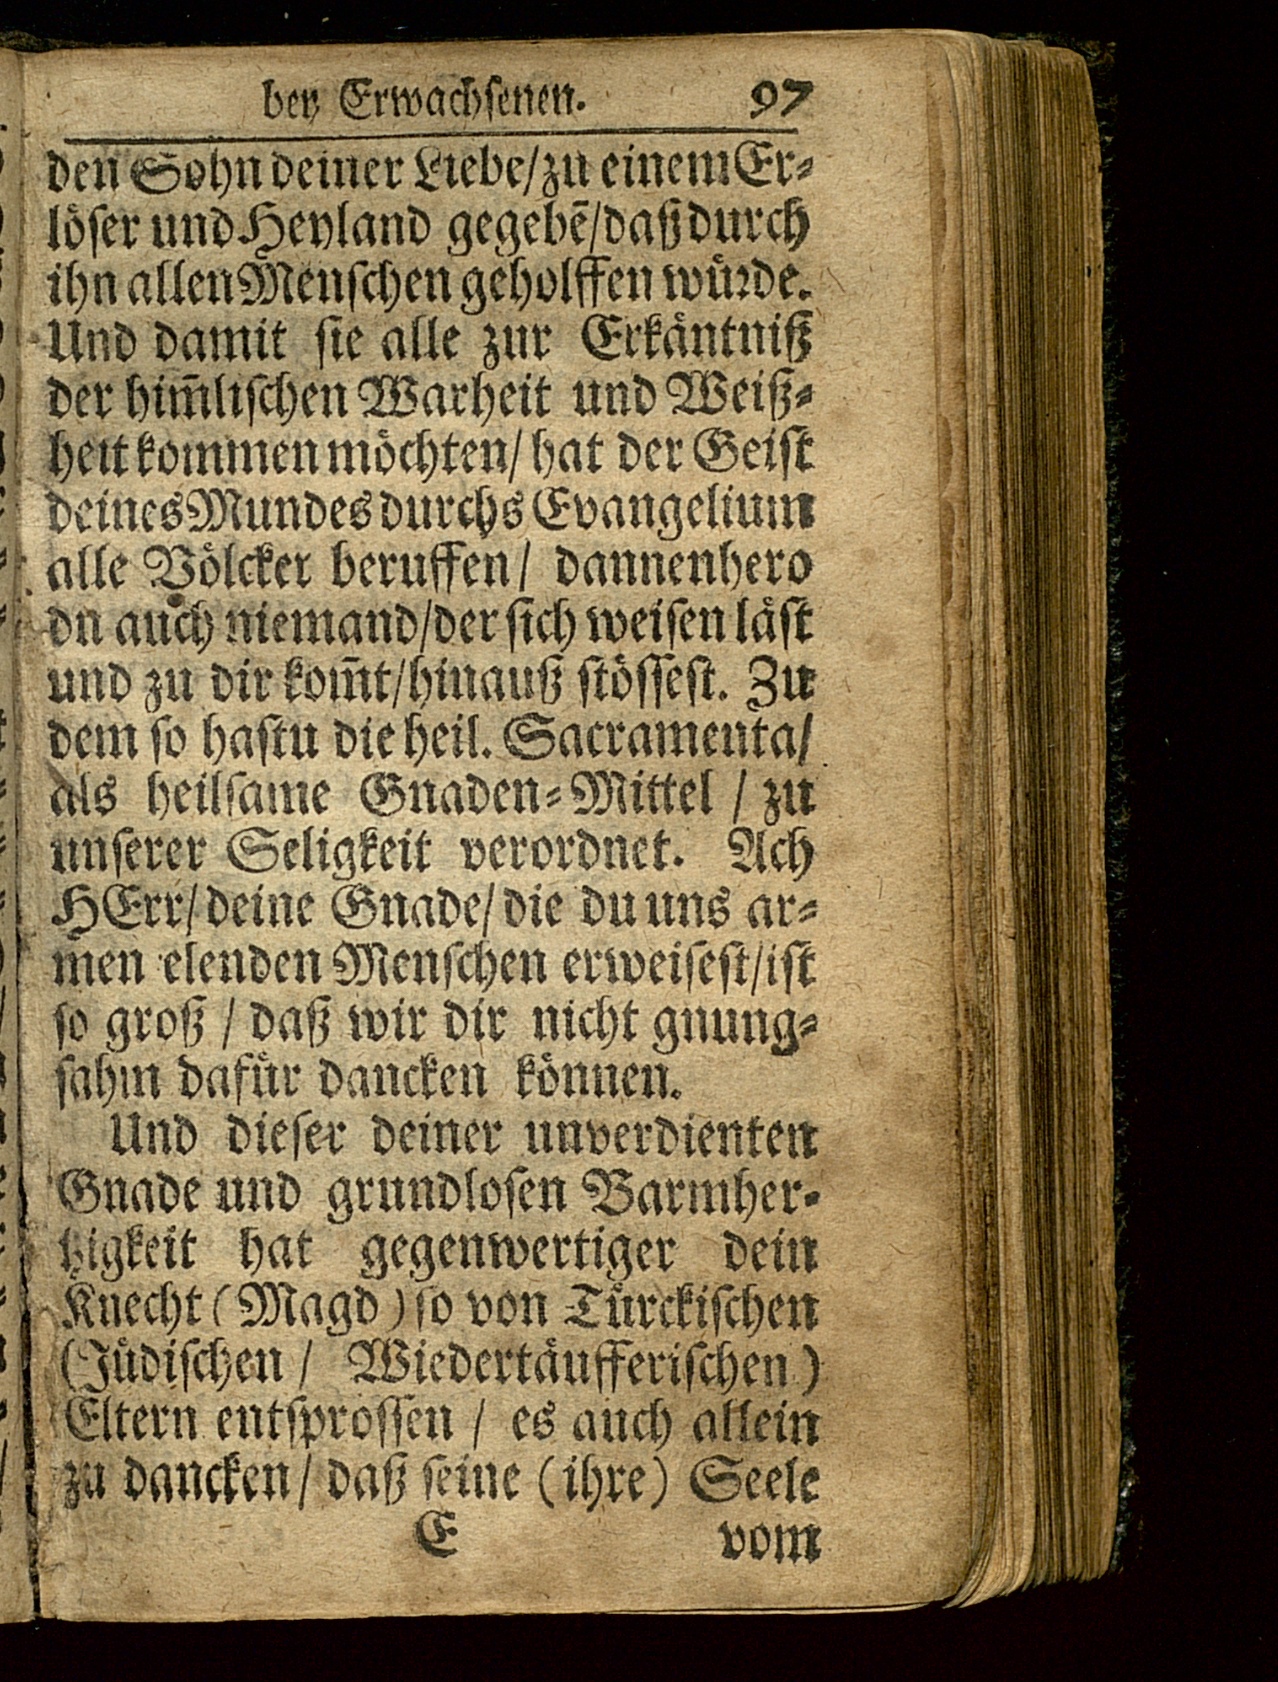 bey Erwachsenen. 97
den Sohn deiner Liebe/zu einem Er-
löser und Heyland gegebē/daß durch
ihn allen Menschen geholffen würde.
Und damit sie alle zur Erkäntniß
der him̄lischen Warheit und Weiß-
heit kommen möchten/ hat der Geist
deines Mundes durchs Evangelium
alle Völcker beruffen/ dannenhero
du auch niemand/der sich weisen läst
und zu dir kom̄t/hinauß stössest. Zu
dem so hastu die heil. Sacramenta/
als heilsame Gnaden-Mittel / zu
unserer Seligkeit verordnet. Ach
HErr/deine Gnade/die du uns ar-
men elenden Menschen erweisest/ist
so groß / daß wir dir nicht gnung-
sahm dafür dancken können.
Und dieser deiner unverdienten
Gnade und grundlosen Barmher-
tzigkeit hat gegenwertiger dein
Knecht (Magd) so von Türckischen
(Jüdischen / Wiedertäufferischen)
Eltern entsprossen / es auch allein
zu dancken/ daß seine (ihre) Seele
E vom